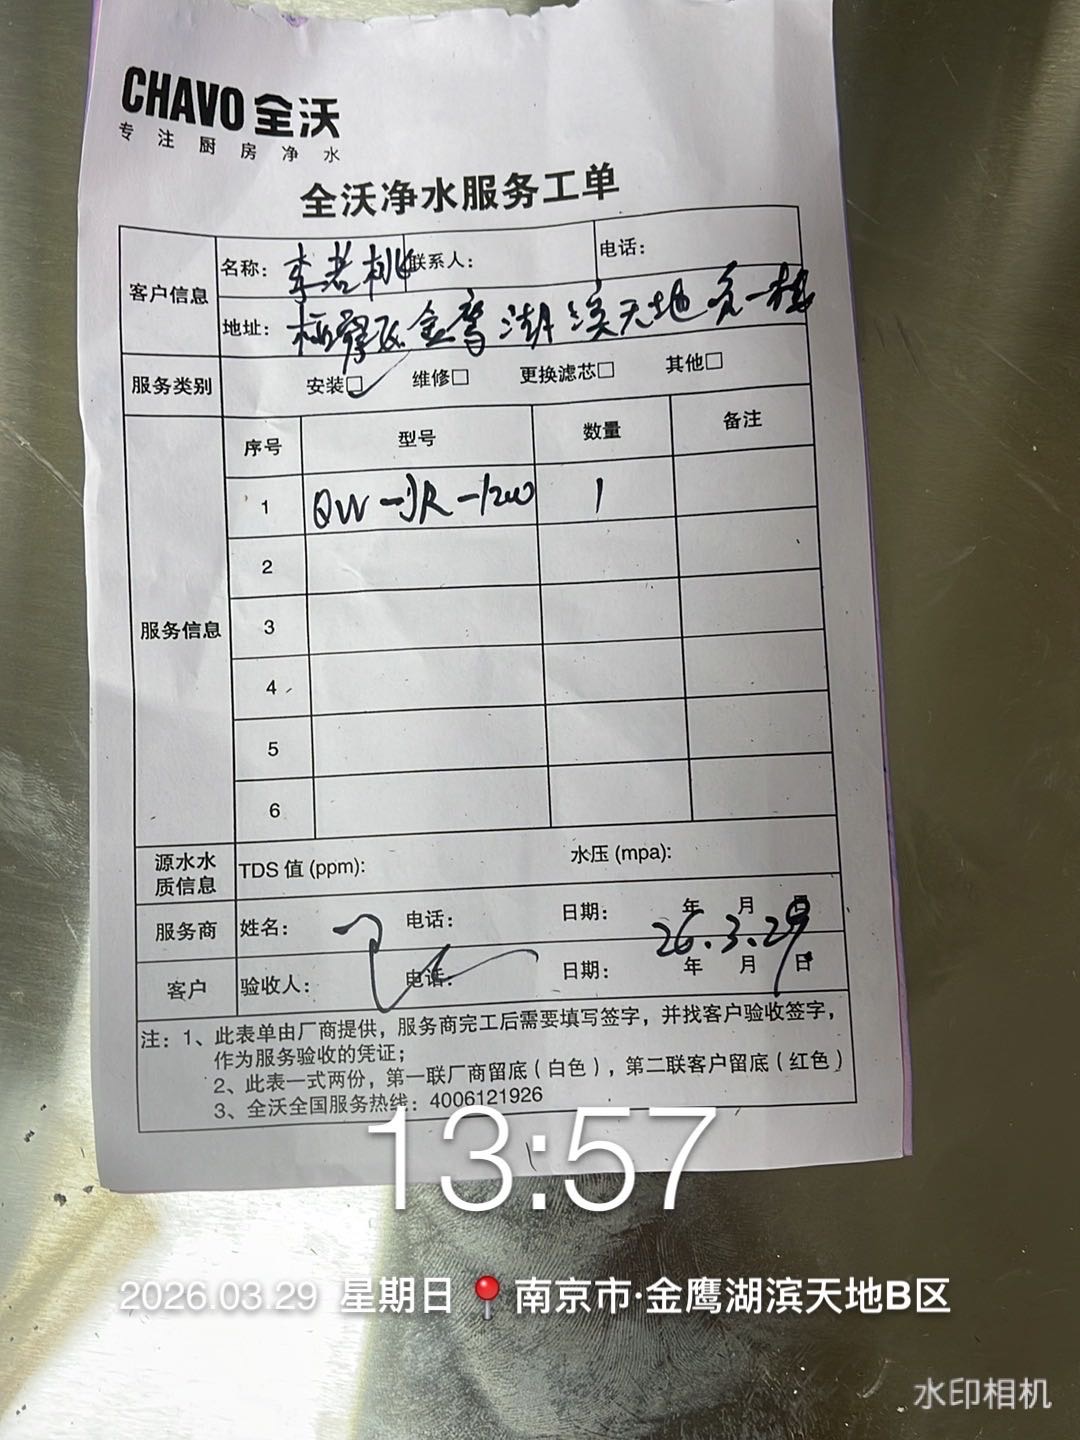 CHAVO 全沃
专注厨房净水
全沃净水服务工单
客户信息 名称：李若桃 联系人： 电话：
地址：栖霞区金鹰湖滨天地负一楼
服务类别 安装☑ 维修□ 更换滤芯□ 其他□
服务信息 序号 型号 数量 备注
1 QW-JR-1200 1
2
3
4
5
6
源水水质信息 TDS 值 (ppm): 水压 (mpa):
服务商 姓名： 电话： 日期： 年 月 日
26.3.29
客户 验收人： 电话： 日期： 年 月 日
注：1、此表单由厂商提供，服务商完工后需要填写签字，并找客户验收签字，
作为服务验收的凭证；
2、此表一式两份，第一联厂商留底（白色），第二联客户留底（红色）
3、全沃全国服务热线：4006121926
13:57
2026.03.29 星期日 南京市·金鹰湖滨天地B区
水印相机